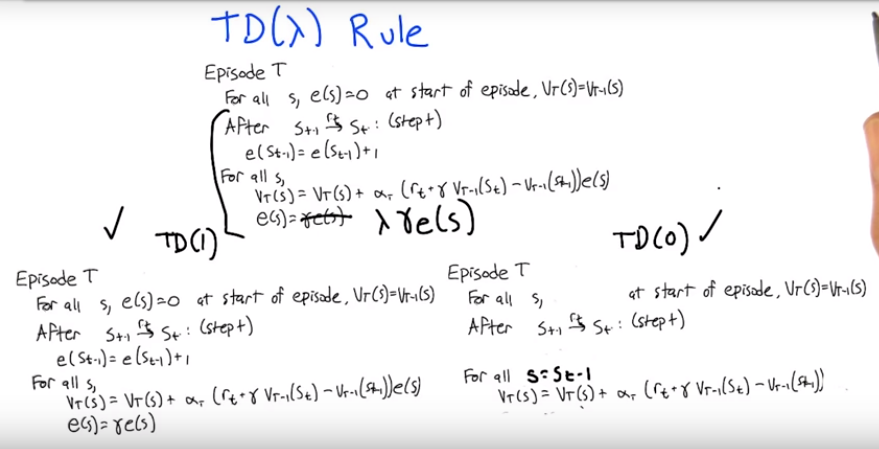 TD(λ) Rule
Episode T
For all s, e(s)=0 at start of episode, V_T(s)=V_T-1(s)
After s_t-1 →^r_t s_t: (step t)
e(s_t-1)=e(s_t-1)+1
For all s,
V_T(s)=V_T(s)+α_T(r_t+γV_T-1(s_t)-V_T-1(s_t-1))e(s)
e(s)=γe(s) λγe(s)
TD(1)
Episode T
For all s, e(s)=0 at start of episode, V_T(s)=V_T-1(s)
After s_t-1 →^r_t s_t: (step t)
e(s_t-1)=e(s_t-1)+1
For all s,
V_T(s)=V_T(s)+α_T(r_t+γV_T-1(s_t)-V_T-1(s_t-1))e(s)
e(s)=γe(s)
TD(0)
Episode T
For all s, at start of episode, V_T(s)=V_T-1(s)
After s_t-1 →^r_t s_t: (step t)
For all s=s_t-1
V_T(s)=V_T(s)+α_T(r_t+γV_T-1(s_t)-V_T-1(s_t-1))